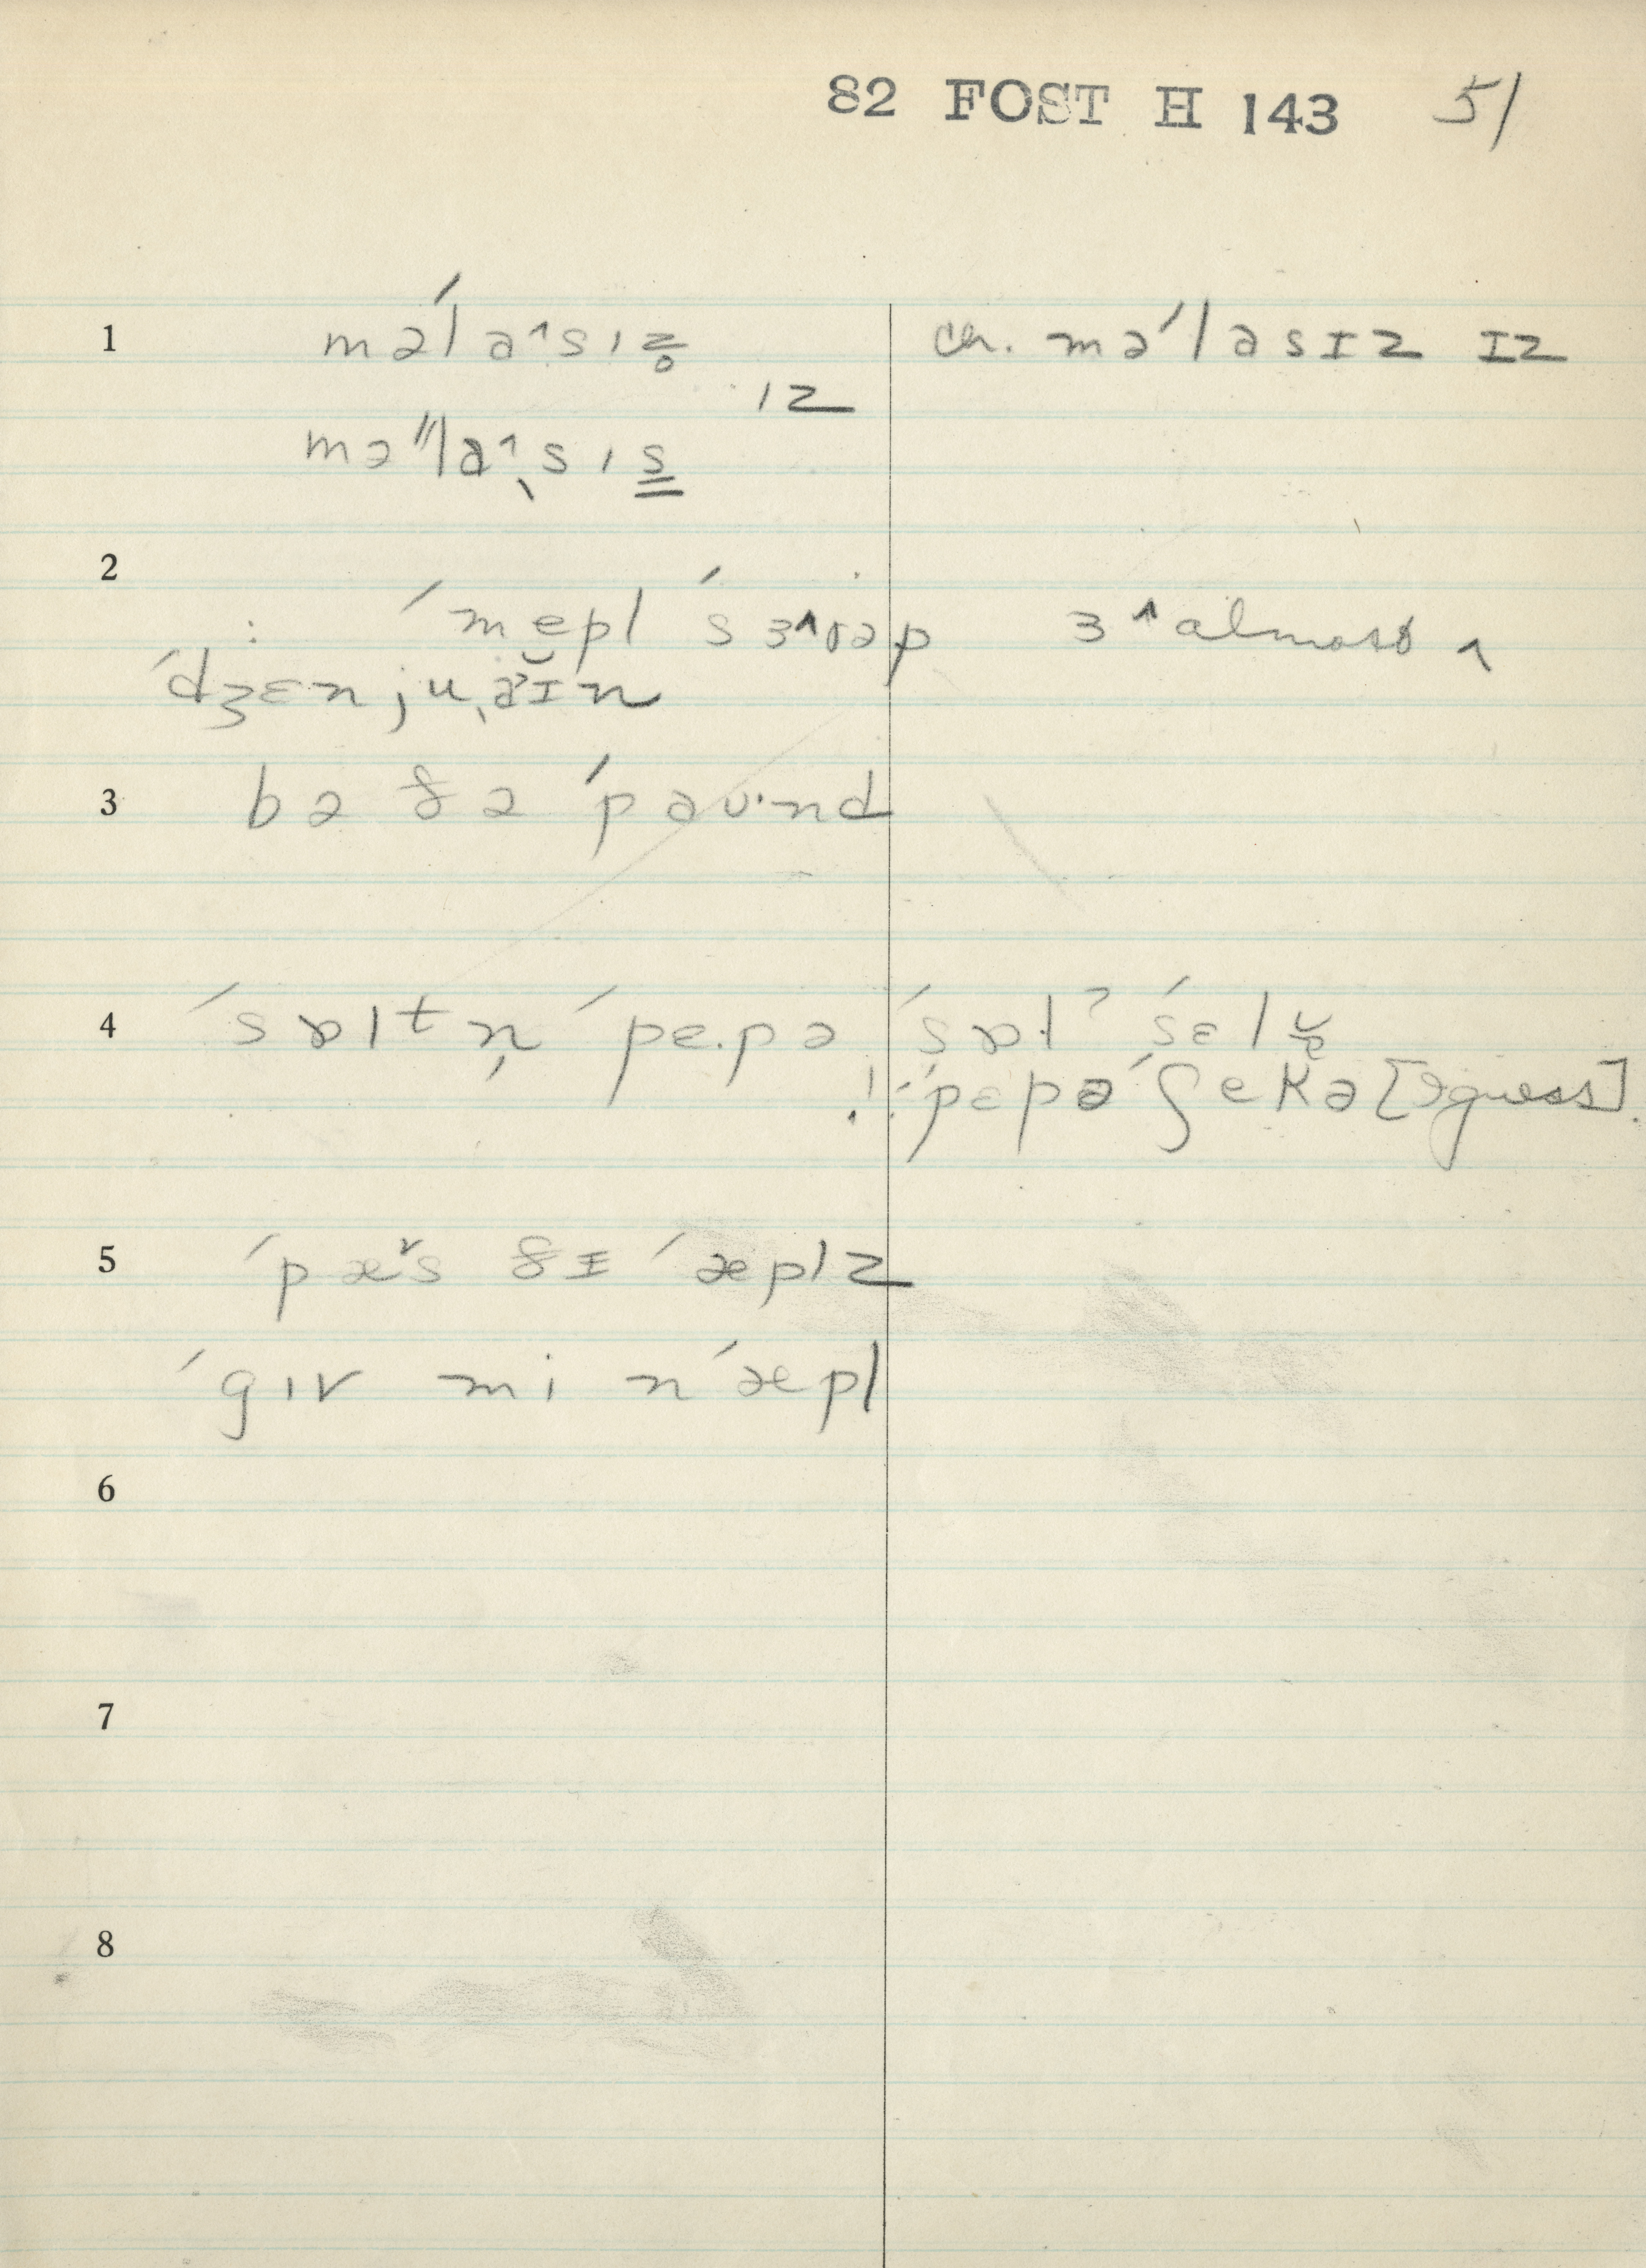 82 FOST H 143 51
1 mə́lɑ˄sɪz̥ ch. məˈlasɪz ɪz
ɪz
məˈˈlɑ˄ˌsɪs
2
: ˈmepl ˈsɜ˄ɪəp ɜ˄ almost ʌ
ˈdʒɛnjuˌaɪ̆n
3 bə ðə ˈpaʊ·nd
4 ˈsɒltn̩ ˈpe.pə ˈsɒlˀ ˈsɛlɚ̆
!: ˈpɛpə ˈʃekə [I guess].
5 ˈpæ˅s ðɪ ˈæplz
ˈgɪv mi nˈæpl
6
7
8